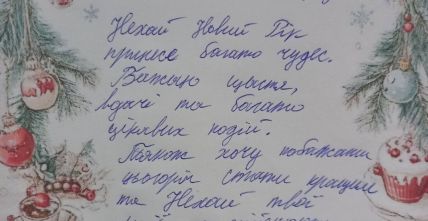 Нехай Новий Рік
принесе багато чудес.
Бажаю щастя,
вдачі та багато
цікавих подій.
Також хочу побажати
цьогоріч стати кращим
та Нехай твої